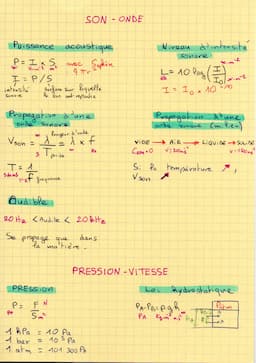 SON - ONDE
Puissance acoustique
P = I x S
avec S sphère
4πr²
I = P/S
intensité sonore
surface sur laquelle le son est répartie
Niveau d'intensité sonore
L = 10 log (I / I₀)
I = I₀ x 10
Propagation d'une onde sonore
longueur d'onde
Vson = λ / T = λ x f
période
T = 1 / f
fréquence
Propagation d'une onde sonore
VIDE → AIR → LIQUIDE → SOLIDE
Si température ↗, Vson ↗
Audible
20 Hz < Audible < 20 kHz
Se propage que dans la matière.
PRESSION - VITESSE
PRESSION
P = F / S
N
m²
1 hPa = 10² Pa
1 bar = 10⁵ Pa
1 atm = 101 300 Pa
Loi hydrostatique